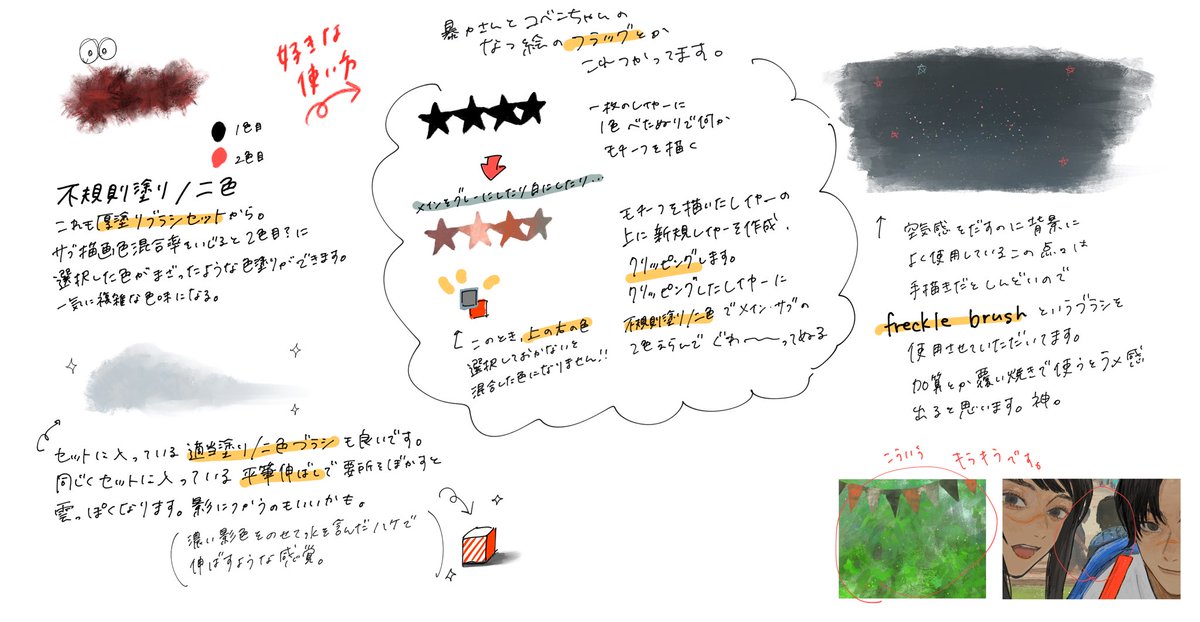 好きな
使い方
1色目
2色目
不規則塗り/二色
これも厚塗りブラシセットから。
サブ描画色混合率をいじると2色目?に
選択した色がまざったような色塗りができます。
一気に複雑な色味になる。
セットに入っている 適当塗り/二色ブラシ も良いです。
同じくセットに入っている 平筆伸ばしで 要所をぼかすと
雲っぽくなります。影につかうのもいいかも。
(濃い影色をのせて水を含んだハケで
伸ばすような感覚。)
暴力さんとコベニちゃんの
なつ絵のフラッグとか
これつかってます。
一枚のレイヤーに
1色べたぬりで何か
モチーフを描く
メインをグレーにしたり白にしたり...
モチーフを描いたレイヤーの
上に新規レイヤーを作成、
クリッピングします。
クリッピングしたレイヤーに
不規則塗り/二色 でメイン・サブの
2色えらんで ぐわ〜〜ってぬる
このとき、上の右の色
選択しておかないと
混合した色になりません!!
空気感をだすのに背景に
よく使用しているこの点々は
手描きだとしんどいので
freckle brush というブラシを
使用させていただいてます。
加算とか覆い焼きで使うとラメ感
出ると思います。神。
こういう
もうきうです。